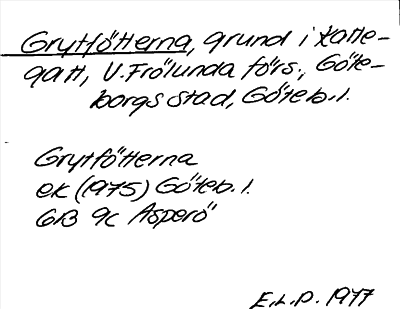 Grytfötterna, grund i Katte-
gatt, V. Frölunda förs., Göte-
borgs stad, Göteb. l.
Grytfötterna
ek (1975) Göteb. l.
6B 9c Asperö
E.L.P. 1977